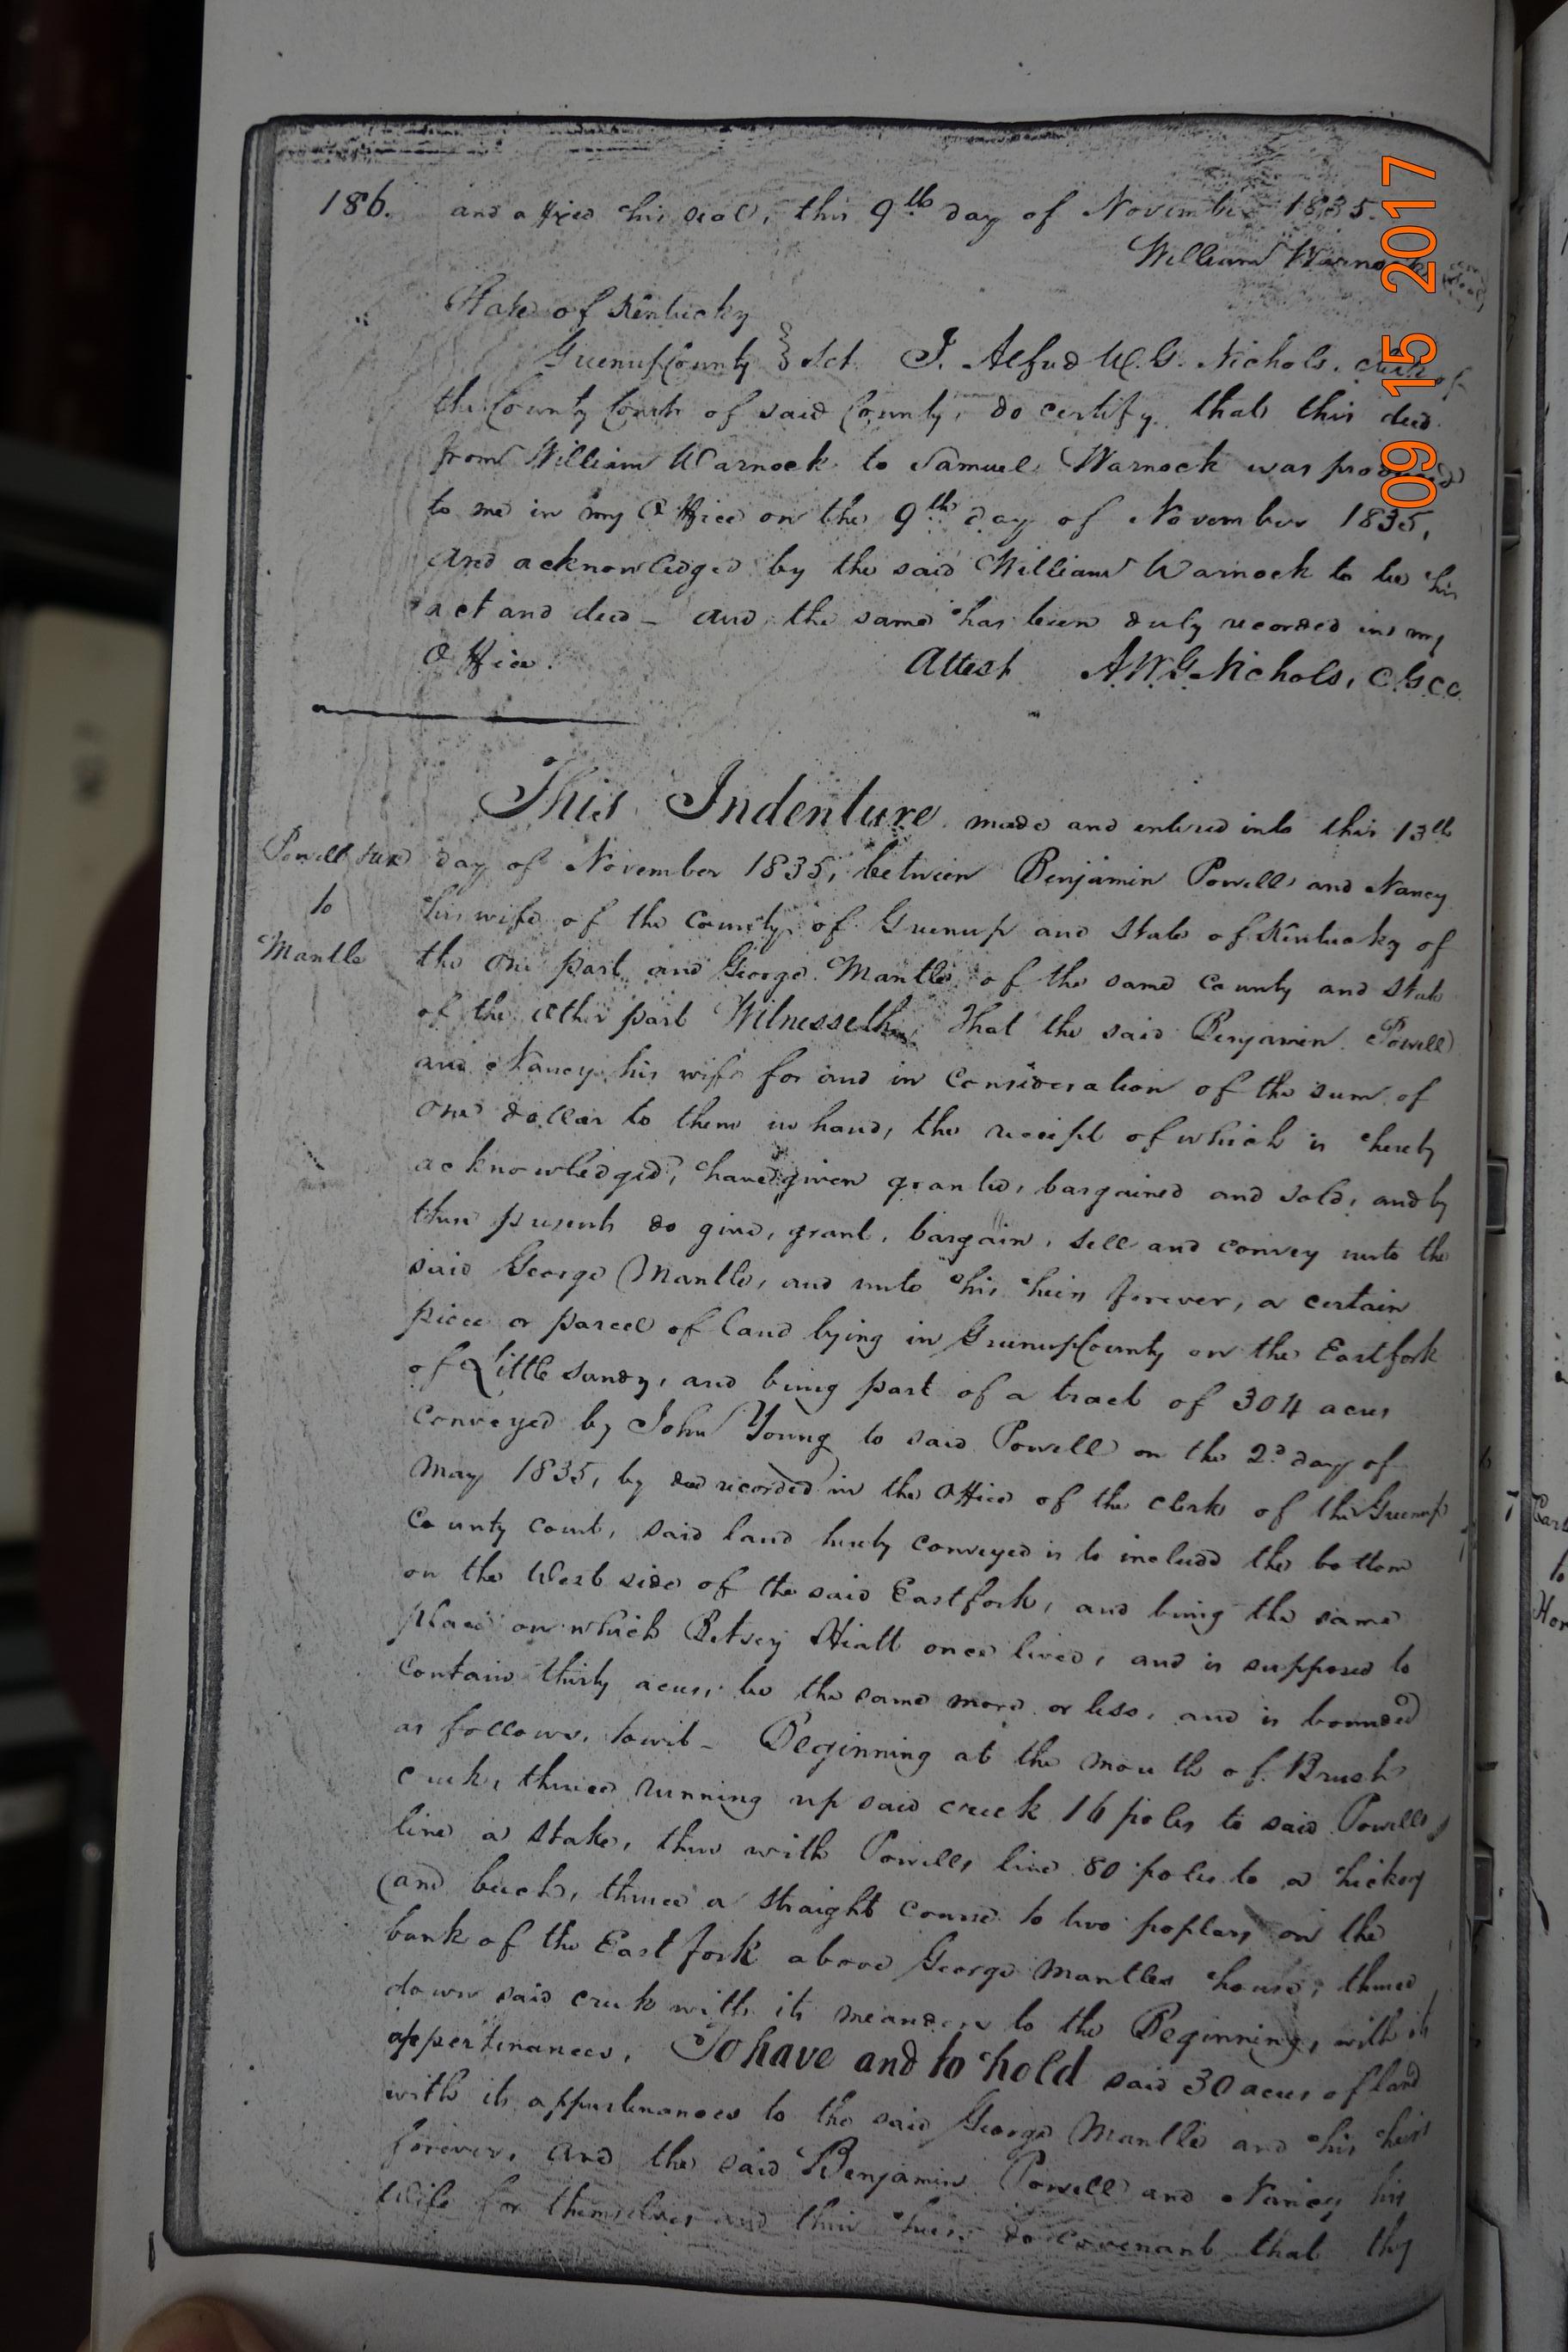 186. and affixed his seal, this 9th day of November 1835.
William Warnock
State of Kentucky
Greenup County } Sct. I. Alfred W. G. Nichols, clerk of
the County Court of said County, do certify, that this deed
from William Warnock to Samuel Warnock was produced
to me in my Office on the 9th day of November 1835,
and acknowledged by the said William Warnock to be his
act and deed - and the same has been duly recorded in my
Office. Attest A.W.G. Nichols, C.G.C.C.
This Indenture made and entered into this 13th
Powell &ux day of November 1835, between Benjamin Powell and Nancy
to his wife of the County of Greenup and State of Kentucky of
Mantle the one part and George Mantle of the same County and State
of the other part Witnesseth, That the said Benjamin Powell
and Nancy his wife for and in Consideration of the sum of
one dollar to them in hand, the receipt of which is hereby
acknowledged, have given granted, bargained and sold, and by
these presents do give, grant, bargain, sell and convey unto the
said George Mantle, and unto his heirs forever, a certain
piece or parcel of land lying in Greenup County on the East fork
of Little Sandy, and being part of a tract of 304 acres
conveyed by John Young to said Powell on the 2d day of
May 1835, by deed recorded in the Office of the clerk of the Greenup
County court, said land hereby conveyed is to include the bottom
on the West side of the said East fork, and being the same
place on which Betsey Hiatt once lived, and is supposed to
contain thirty acres, be the same more or less, and is bounded
as follows, towit - Beginning at the mouth of Brush
creek, thence running up said creek 16 poles to said Powells
line a stake, then with Powells line 80 poles to a hickory
and beech, thence a straight course to two poplars on the
bank of the East fork above George Mantles house, thence
down said creek with its meanders to the Beginning, with its
appertinances. To have and to hold said 30 acres of land
with its appurtenances to the said George Mantle and his heirs
forever, and the said Benjamin Powell and Nancy his
wife for themselves and their heirs do covenant that they
09 15 2017